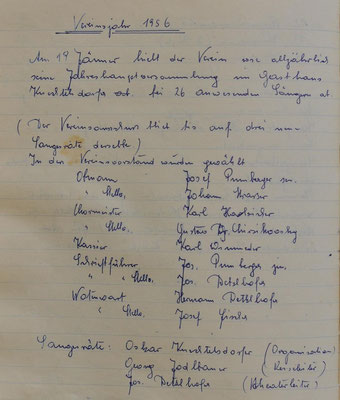 Vereinsjahr 1956
Am 14 Jänner hielt der Verein wie alljährlich
seine Jahreshauptversammlung im Gasthaus
Knechtelsdorfer ab. bei 26 anwesenden Sängern ab.
(Der Vereinsausschuss blieb bis auf drei neue
Sangesräte derselbe)
In den Vereinsvorstand wurden gewählt
Obmann Josef Pumberger sen.
" Stellv. Johann Strasser
Chormeister Karl
" Stellv. Gustav
Kassier Karl
Schriftführer Jos. Pumberger jun.
" " Stellv. Jos. Dettlhofer
Notenwart Hermann Dettlhofer
" Stellv. Josef
Sangesräte: Oskar Knechtelsdorfer (Organisation)
Georg Jodlbauer
Jos. Dettlhofer (Theaterleiter)